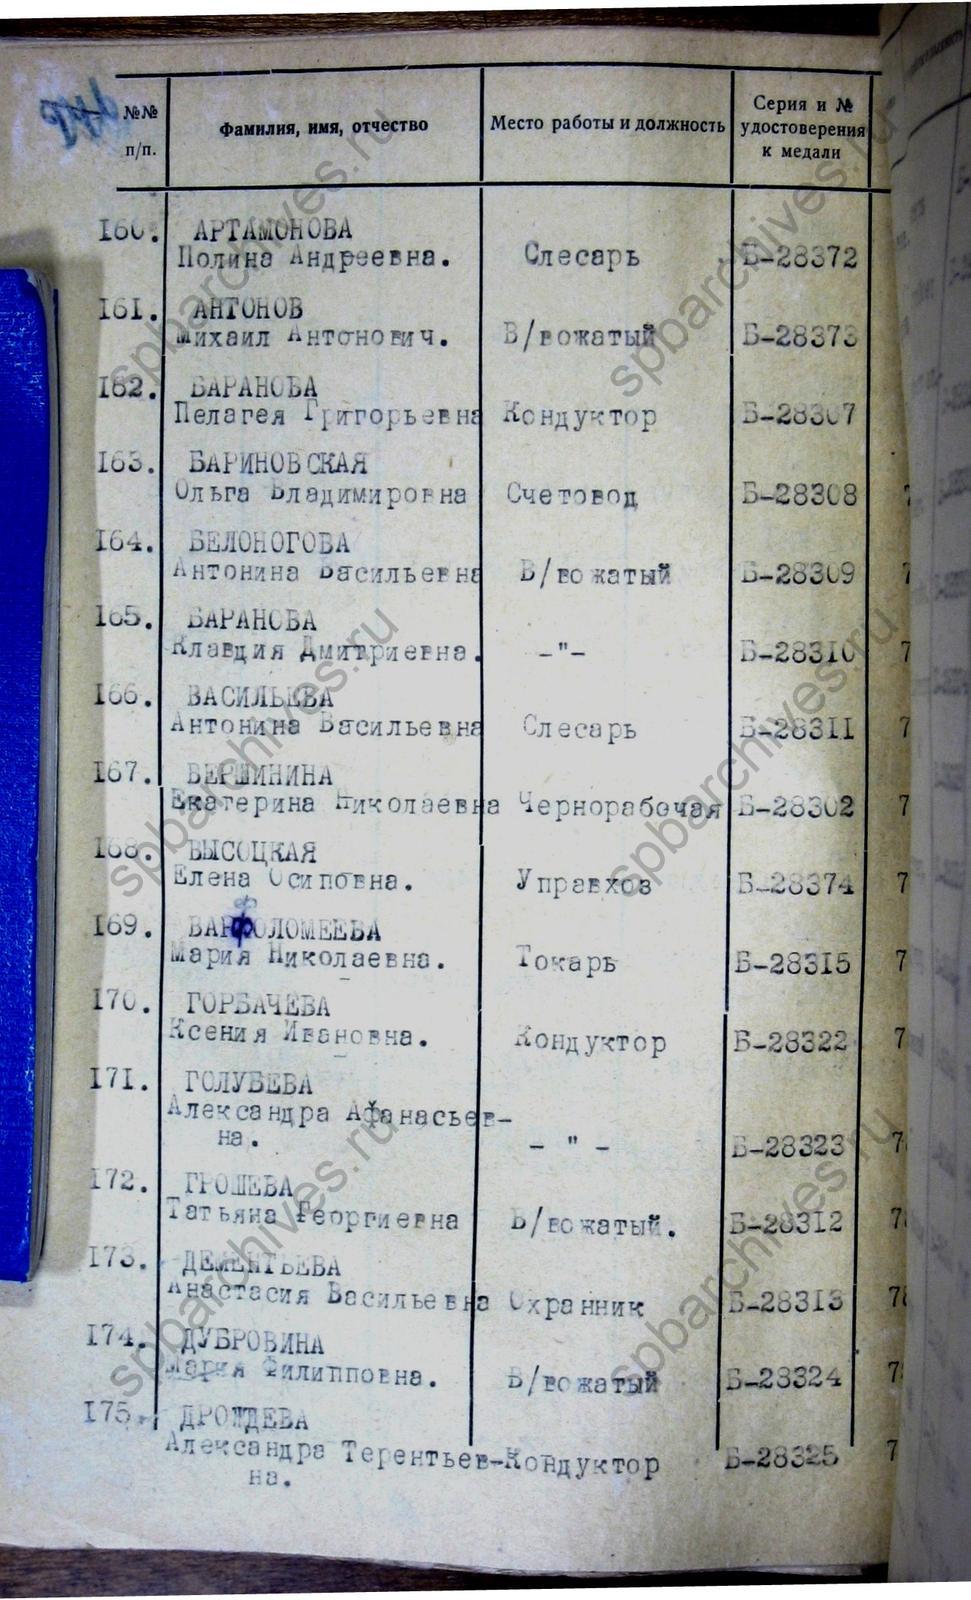 №№
п/п.
Фамилия, имя, отчество
Место работы и должность
Серия и №
удостоверения
к медали
160. АРТАМОНОВА
Полина Андреевна. Слесарь Б-28372
161. АНТОНОВ
Михаил Антонович. В/вожатый Б-28373
162. БАРАНОВА
Пелагея Григорьевна Кондуктор Б-28307
163. БАРИНОВСКАЯ
Ольга Владимировна Счетовод Б-28308 7
164. БЕЛОНОГОВА
Антонина Васильевна В/вожатый Б-28309 7
165. БАРАНОВА
Клавдия Дмитриевна. -"- Б-28310 7
166. ВАСИЛЬЕВА
Антонина Васильевна Слесарь Б-28311 7
167. ВЕРШИНИНА
Екатерина Николаевна Чернорабочая Б-28302 7
168. ВЫСОЦКАЯ
Елена Осиповна. Управхоз Б-28374 7
169. ВАРФОЛОМЕЕВА
Мария Николаевна. Токарь Б-28315 7
170. ГОРБАЧЕВА
Ксения Ивановна. Кондуктор Б-28322 7
171. ГОЛУБЕВА
Александра Афанасьев-
на. - " - Б-28323 7
172. ГРОШЕВА
Татьяна Георгиевна В/вожатый. Б-28312 7
173. ДЕМЕНТЬЕВА
Анастасия Васильевна Охранник Б-28313 78
174. ДУБРОВИНА
Мария Филипповна. В/вожатый Б-28324 7
175. ДРОЖДЕВА
Александра Терентьев- Кондуктор Б-28325 7
на.
spbarchives.ru
spbarchives.ru
spbarchives.ru
spbarchives.ru
spbarchives.ru
spbarchives.ru